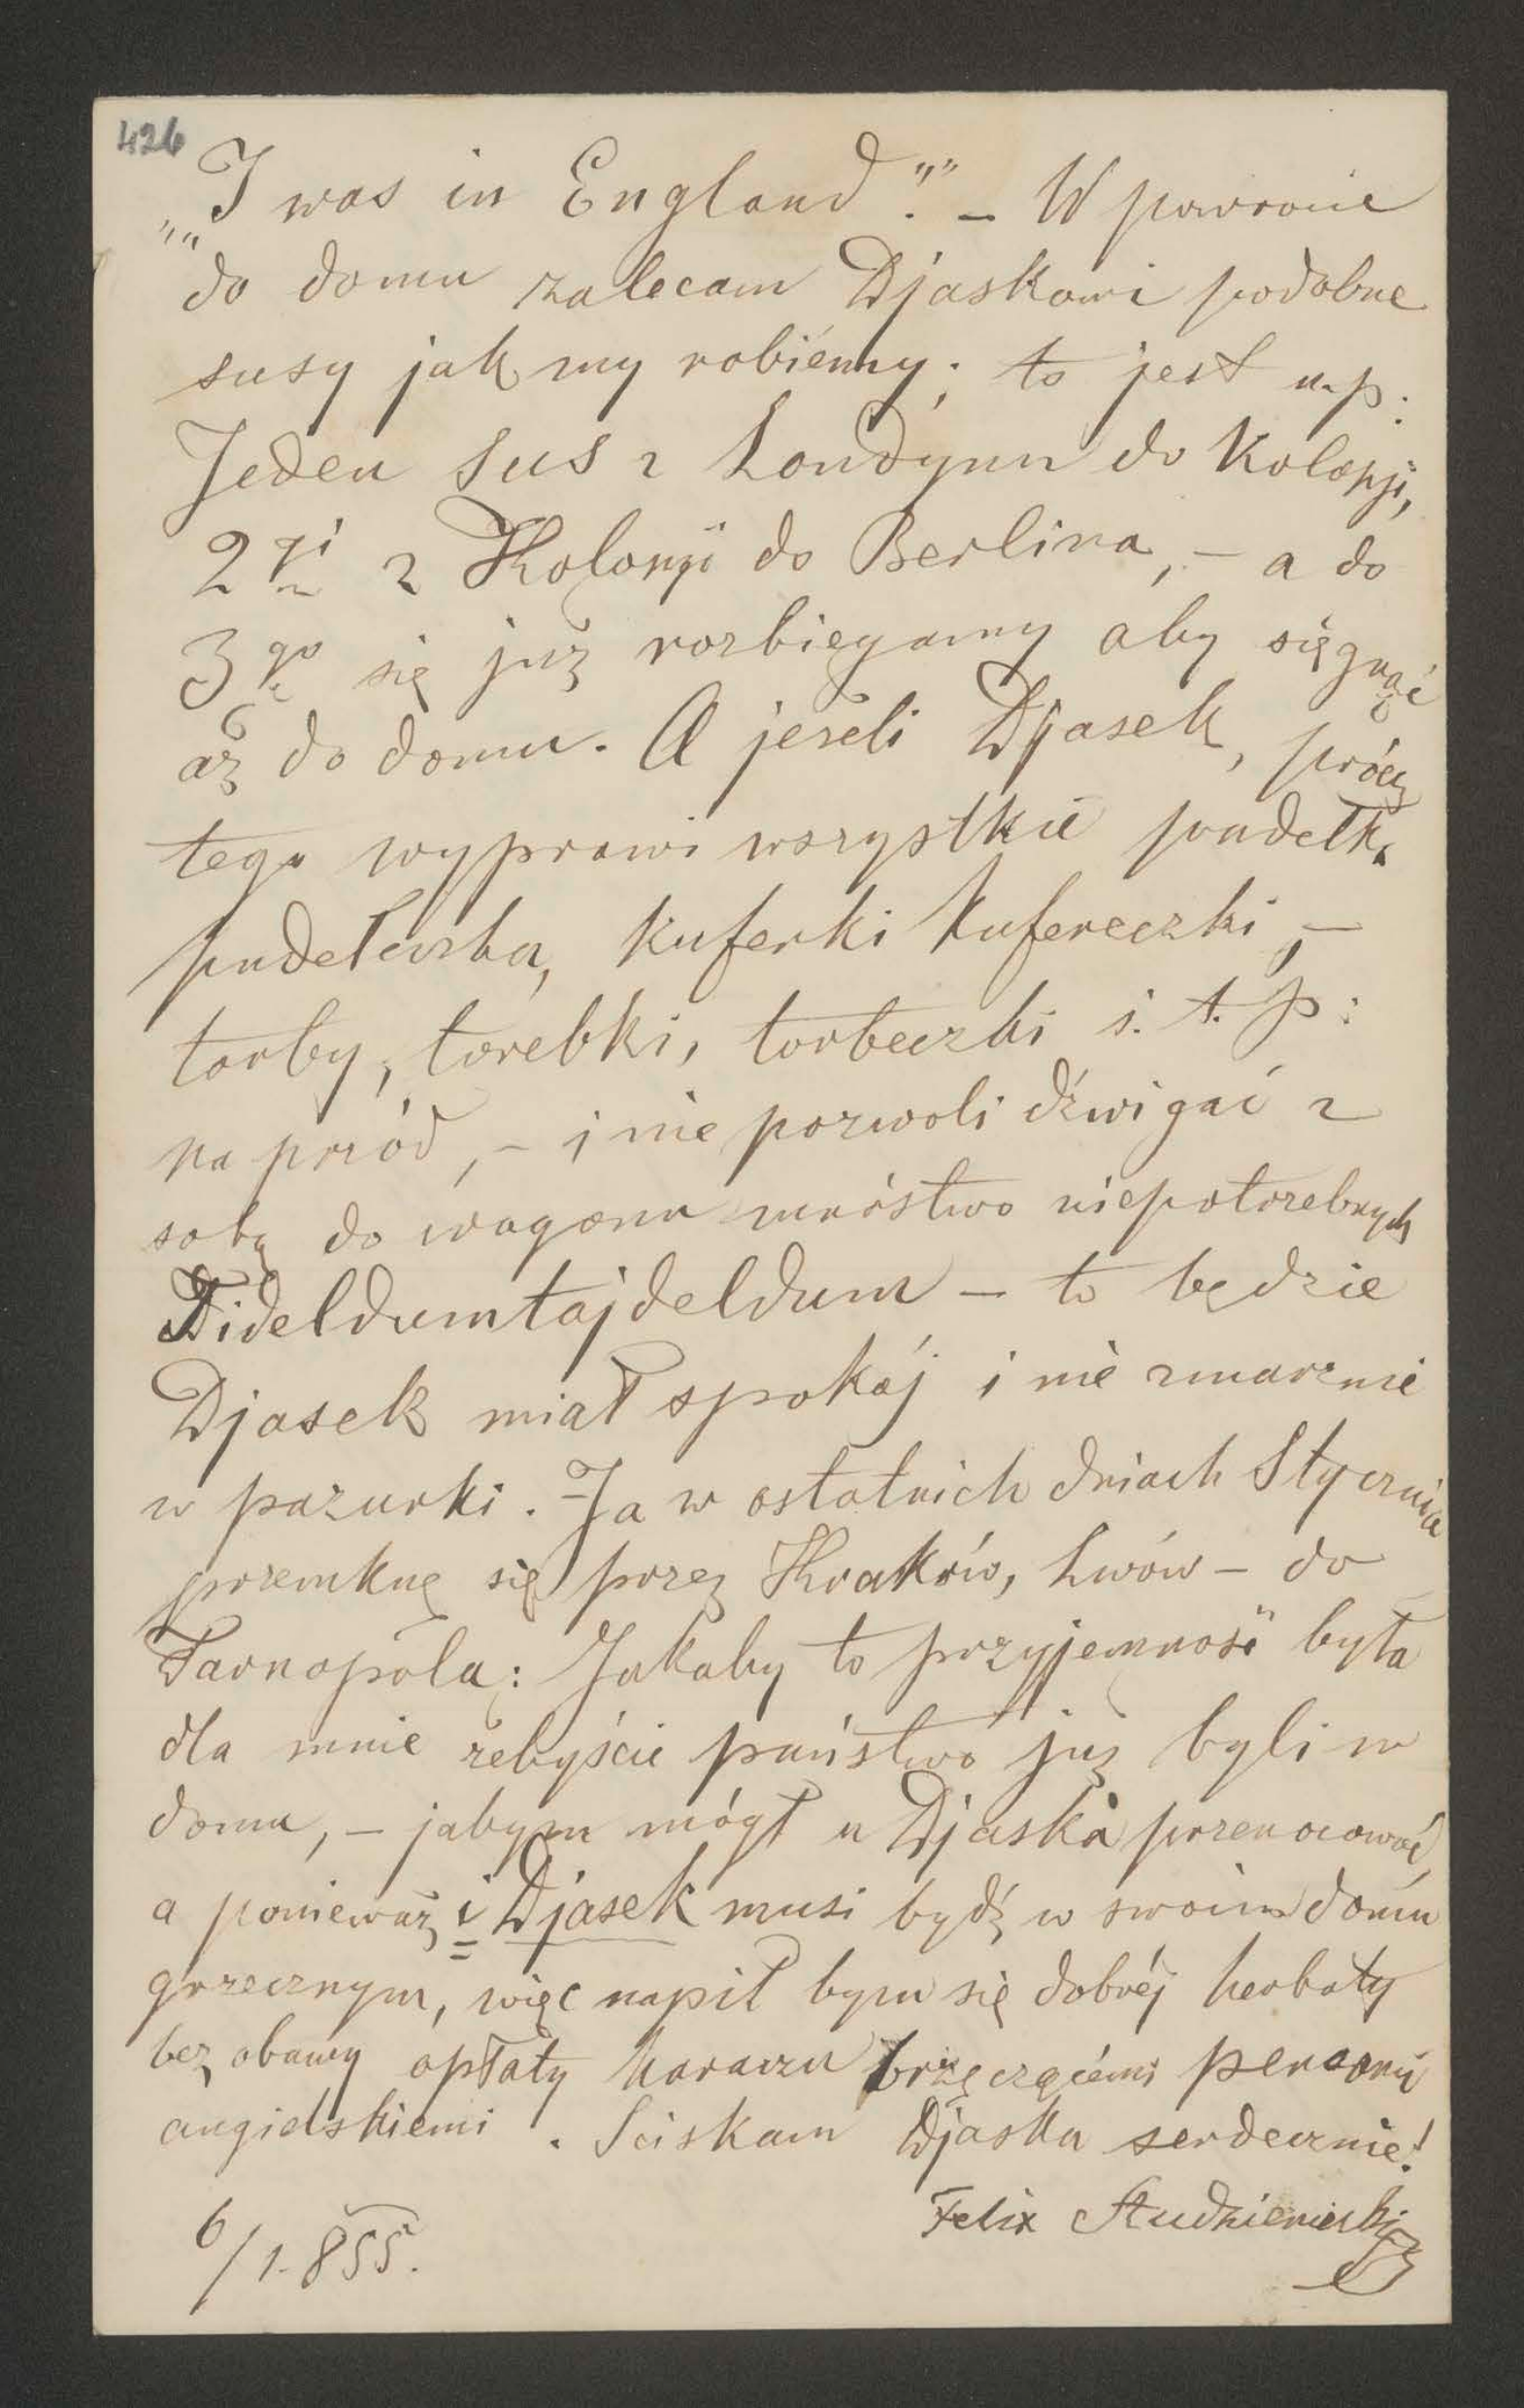 426
„„I was in England."" – W powrocie
do domu zalecam Djaskowi podobne
susy jak my robiémy; to jest n.p:
Jeden sus z Londynu do Kolonji,
2gi z Kolonji do Berlina, – a do
3go się już rozbiegamy aby sięgnąć
aż do domu. A jeżeli Djasek, prócz
tego wyprawi wszystkie pudełka
pudełeczka, kuferki kufereczki, –
torby, torebki, torbeczki i. t. p:
na przód, – i nie pozwoli dźwigać z
sobą do wagonu mnóstwo niepotrzebnych
Dideldumtajdeldum – to będzie
Djasek miał spokój i nie zmarznie
w pazurki. – Ja w ostatnich dniach Stycznia
przemknę się przez Kraków, Lwów – do
Tarnopola: Jakaby to przyjemność była
dla mnie żebyście państwo już byli w
domu, – jabym mógł u Djaska przenocować,
a ponieważ i Djasek musi bydź w swoim domu
grzecznym, więc napił bym się dobréj herbaty
bez obawy opłaty haraczu brzęczącémi pensami
angielskiemi. Sciskam Djaska serdecznie!
Felix Studzieniecki
6/1.855.